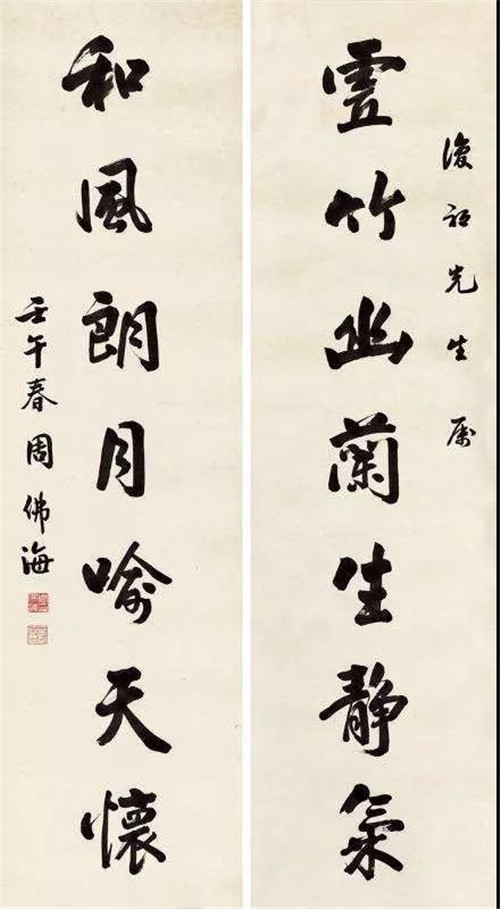 復先生属
虚竹幽蘭生静氣
和風朗月喻天懷
壬午春周佛海